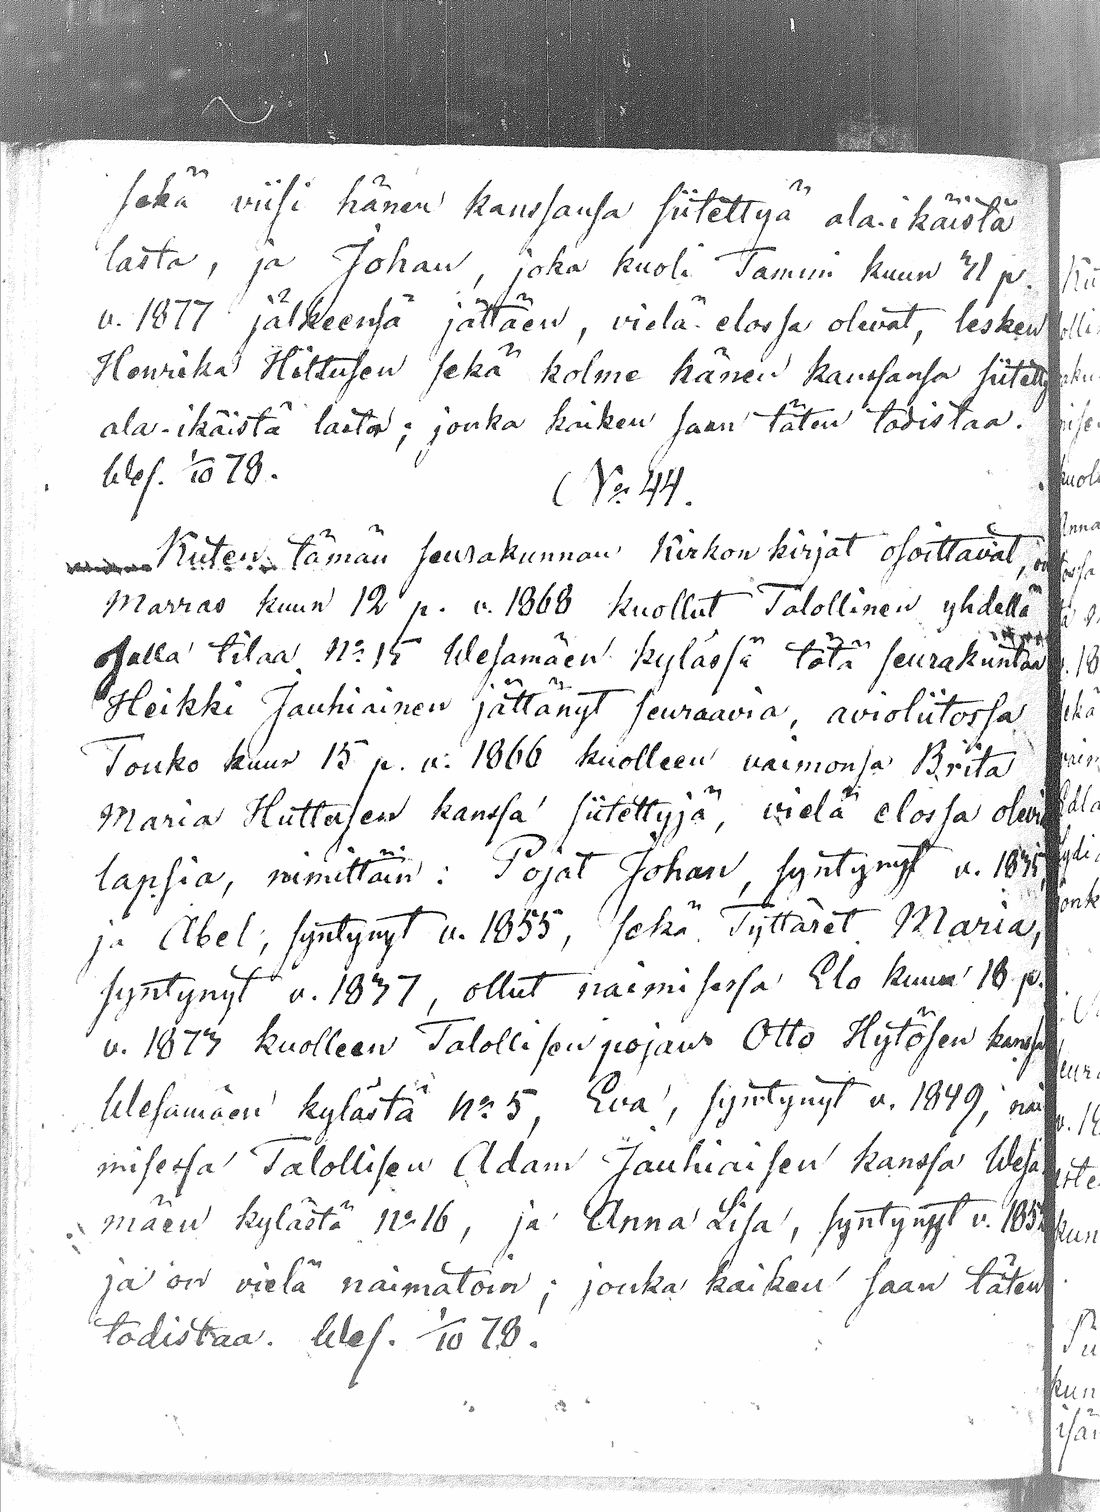 sekä viisi hänen kanssansa siitettyä ala-ikäistä
lasta, ja Johan, joka kuoli Tammi kuun 31 p.
v. 1877 jälkeensä jättäen, vielä elossa olevat, lesken
Henrika Hiltusen sekä kolme hänen kanssansa siitetty
ala-ikäistä lasta; jonka kaiken saan täten todistaa.
Wes. 1/10 78.
No 44.
Kuten tämän seurakunnan Kirkon kirjat osoittavat, on
Marras kuun 12 p. v. 1868 kuollut Talollinen yhdellä
osalla tilaa No 15 Wesamäen kylässä tätä seurakuntaa
Heikki Jauhiainen jättänyt seuraavia, avioliitossa
Touko kuun 15 p. v. 1866 kuolleen vaimonsa Brita
Maria Huttusen kanssa siitettyjä, vielä elossa olevia
lapsia, nimittäin: Pojat Johan, syntynyt v. 1835,
ja Abel, syntynyt v. 1855, sekä Tyttäret Maria,
syntynyt v. 1837, ollut naimisessa Elo kuun 18 p.
v. 1873 kuolleen Talollisen pojan Otto Hytösen kanssa
Wesamäen kylästä No 5, Eva, syntynyt v. 1849, nai
misessa Talollisen Adam Jauhiaisen kanssa Wesa
mäen kylästä No 16, ja Anna Lisa, syntynyt v.
ja on vielä naimatoin; jonka kaiken saan täten
todistaa. Wes. 1/10 78.